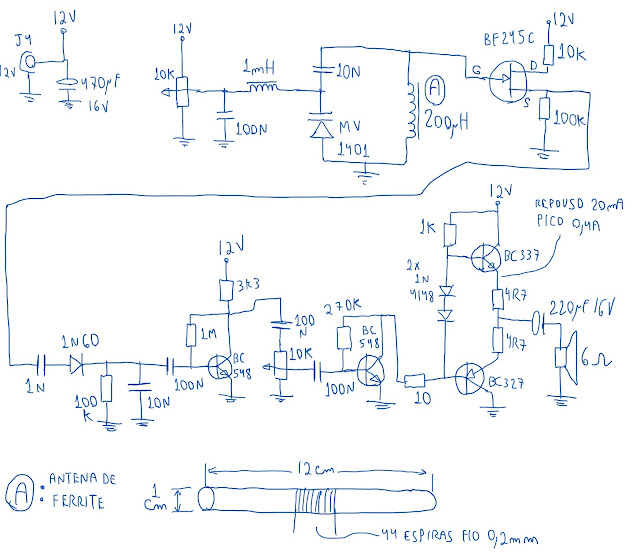 J4
12V
12V
470µF
16V
12V
10K
100N
1mH
10N
MV
1401
A
200µH
BF245C
G
D
S
12V
10K
100K
1N
1N60
100
K
10N
100N
12V
3K3
1M
BC
548
100
N
10K
100N
270K
BC
548
10
1K
2x
1N
4148
12V
BC337
REPOUSO 20mA
PICO 0,4A
4R7
4R7
BC327
220µF 16V
6Ω
A : ANTENA DE
FERRITE
1
cm
12cm
44 ESPIRAS FIO 0,2mm